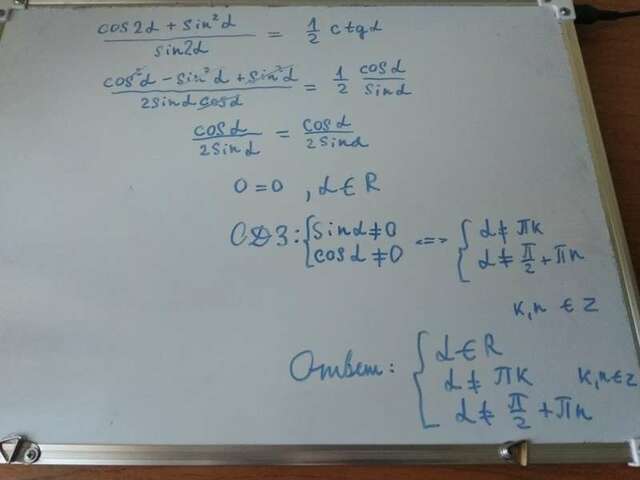 (cos2α + sin²α)/(sin2α) = 1/2 ctgα
(cos²α - sin²α + sin²α)/(2sinα cosα) = 1/2 cosα/sinα
cosα/(2sinα) = cosα/(2sinα)
0 = 0 , α ∈ R
ОДЗ: { sinα ≠ 0 <=> { α ≠ πk
cosα ≠ 0 α ≠ π/2 + πn
k,n ∈ Z
Ответ: { α ∈ R
α ≠ πk k,n ∈ Z
α ≠ π/2 + πn